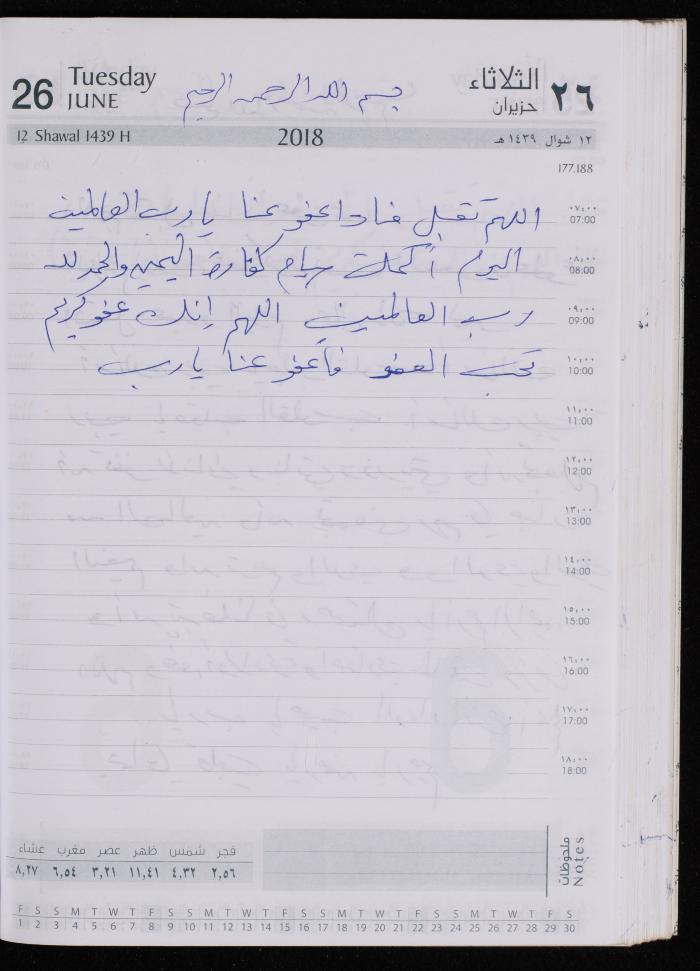 26 Tuesday JUNE
بسم الله الرحمن الرحيم
الثلاثاء ٢٦
حزيران
12 Shawal 1439 H 2018 ١٢ شوال ١٤٣٩ هـ
177.188
اللهم تقبل منا واعفو عنا يا رب العالمين
اليوم أكملت صيام كفارة اليمين والحمد لله
رب العالمين اللهم إنك عفو كريم
تحب العفو فأعفو عنا يا رب
٠٧,٠٠
07:00
٠٨,٠٠
08:00
٠٩,٠٠
09:00
١٠,٠٠
10:00
١١,٠٠
11:00
١٢,٠٠
12:00
١٣,٠٠
13:00
١٤,٠٠
14:00
١٥,٠٠
15:00
١٦,٠٠
16:00
١٧,٠٠
17:00
١٨,٠٠
18:00
فجر شمس ظهر عصر مغرب عشاء
٢,٥٦ ٤,٣٢ ١١,٤١ ٣,٢١ ٦,٥٤ ٨,٢٧
ملحوظات
Notes
F S S M T W T F S S M T W T F S S M T W T F S S M T W T F S
1 2 3 4 5 6 7 8 9 10 11 12 13 14 15 16 17 18 19 20 21 22 23 24 25 26 27 28 29 30